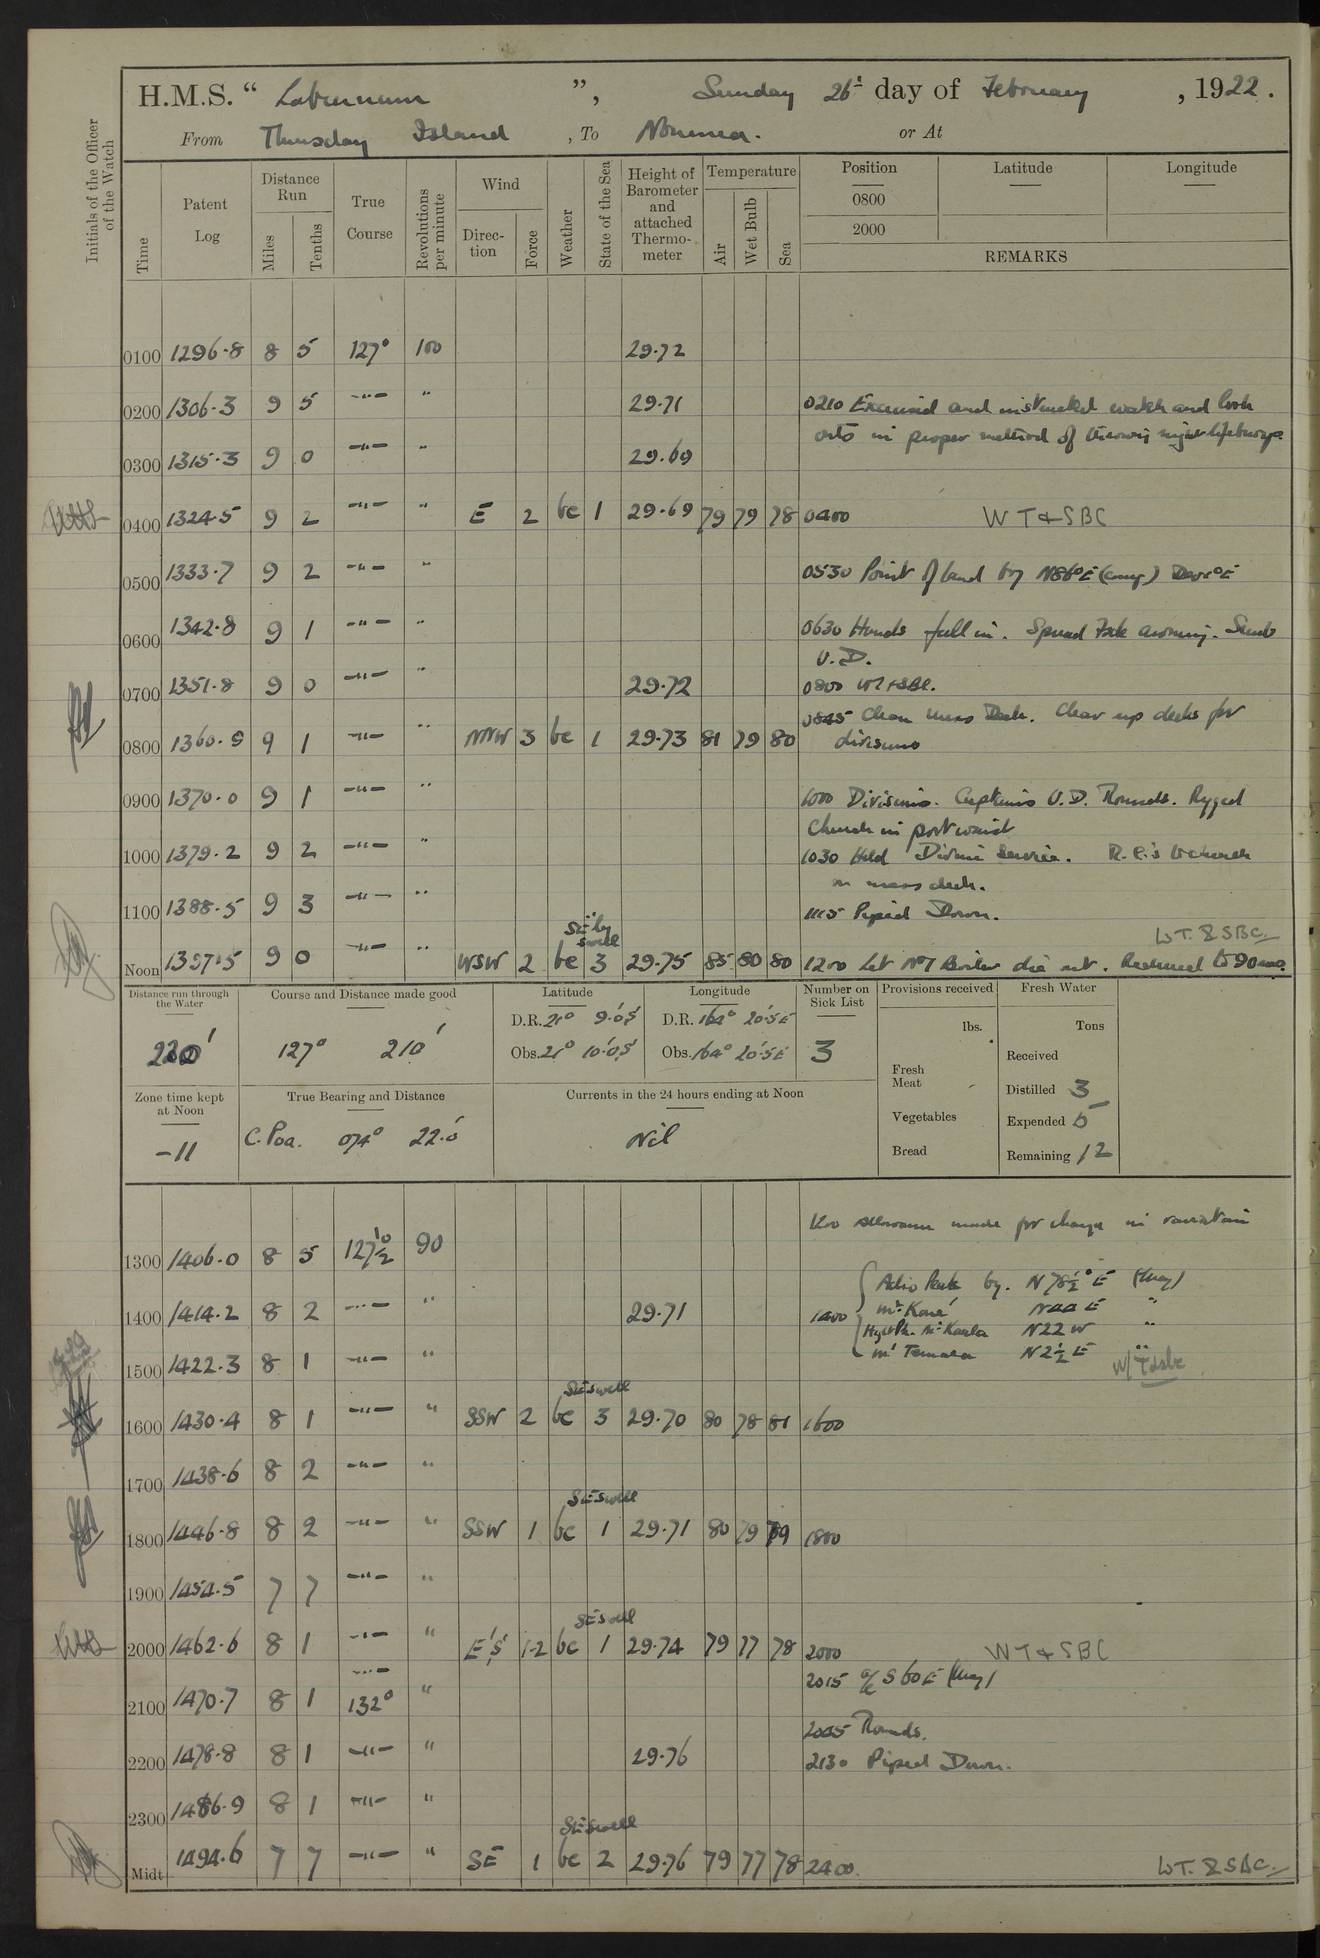 H.M.S. “ Laburnum ”, Sunday 26th day of February , 1922.
From Thursday Island , To Noumea. or At
Initials of the Officer of the Watch
Time
Patent Log
Distance Run
Miles
Tenths
True Course
Revolutions per minute
Wind
Direc-tion
Force
Weather
State of the Sea
Height of Barometer and attached Thermo-meter
Temperature
Air
Wet Bulb
Sea
Position Latitude Longitude
0800
2000
REMARKS
0100 1296.8 8 5 127° 100 29.72
0200 1306.3 9 5 —"— " 29.71 0210 Exercised and instructed watch and look
outs in proper method of throwing night lifebuoys.
0300 1315.3 9 0 —"— " 29.69
0400 1324.5 9 2 —"— " E 2 bc 1 29.69 79 79 78 0400 WT & SBC
0500 1333.7 9 2 —"— " 0530 Point of land by N86°E (mag)
0600 1342.8 9 1 —"— " 0630 Hands fall in. Spread awning.
U.D.
0700 1351.8 9 0 —"— " 29.72 0800 WT & SBC.
0845 Clean Mess Deck. Clear up decks for
divisions
0800 1360.9 9 1 —"— " NNW 3 bc 1 29.73 81 79 80
0900 1370.0 9 1 —"— " 1000 Divisions. Captains U.D. Rounds. Rigged
Church in port waist
1000 1379.2 9 2 —"— " 1030 Held Divine Service. R.C.s
on mess deck.
1100 1388.5 9 3 —"— " 1115 Piped Down.
SE'ly swell WT. & SBC.
Noon 1397.5 9 0 —"— " WSW 2 bc 3 29.75 85 80 80 1200 Let No 1 Boiler die out. Reduced to 90 revs.
Distance run through the Water
220'
Course and Distance made good
127° 210'
Latitude
D.R. 21° 9.0'S
Obs. 21° 10.0'S
Longitude
D.R. 164° 20.5'E
Obs. 164° 20.5'E
Number on Sick List
3
Provisions received
lbs.
Fresh Meat
Vegetables
Bread
Fresh Water
Tons
Received
Distilled 3
Expended 5
Remaining 12
Zone time kept at Noon
-11
True Bearing and Distance
C. Poa. 074° 22.0'
Currents in the 24 hours ending at Noon
Nil
1200 allowance made for change in variation
1300 1406.0 8 5 127½° 90
Peak by. N 78½° E (mag)
1400 1414.2 8 2 —"— " 29.71 1400 Mt Koné N44E "
N22W "
1500 1422.3 8 1 —"— " Mt N2½E "
WT & sbc
SE swell
1600 1430.4 8 1 —"— " SSW 2 bc 3 29.70 80 78 81 1600
1700 1438.6 8 2 —"— "
SE swell
1800 1446.8 8 2 —"— " SSW 1 bc 1 29.71 80 79 79 1800
1900 1454.5 7 7 —"— "
SE swell
2000 1462.6 8 1 —"— " E'S 1-2 bc 1 29.74 79 77 78 2000 WT & SBC
—"— 2015 a/c S60E (mag)
2100 1470.7 8 1 132° "
2045 Rounds.
2200 1478.8 8 1 —"— " 29.76 2130 Piped Down.
2300 1486.9 8 1 —"— "
SE swell
Midt 1494.6 7 7 —"— " SE 1 bc 2 29.76 79 77 78 2400. WT. & SBC.